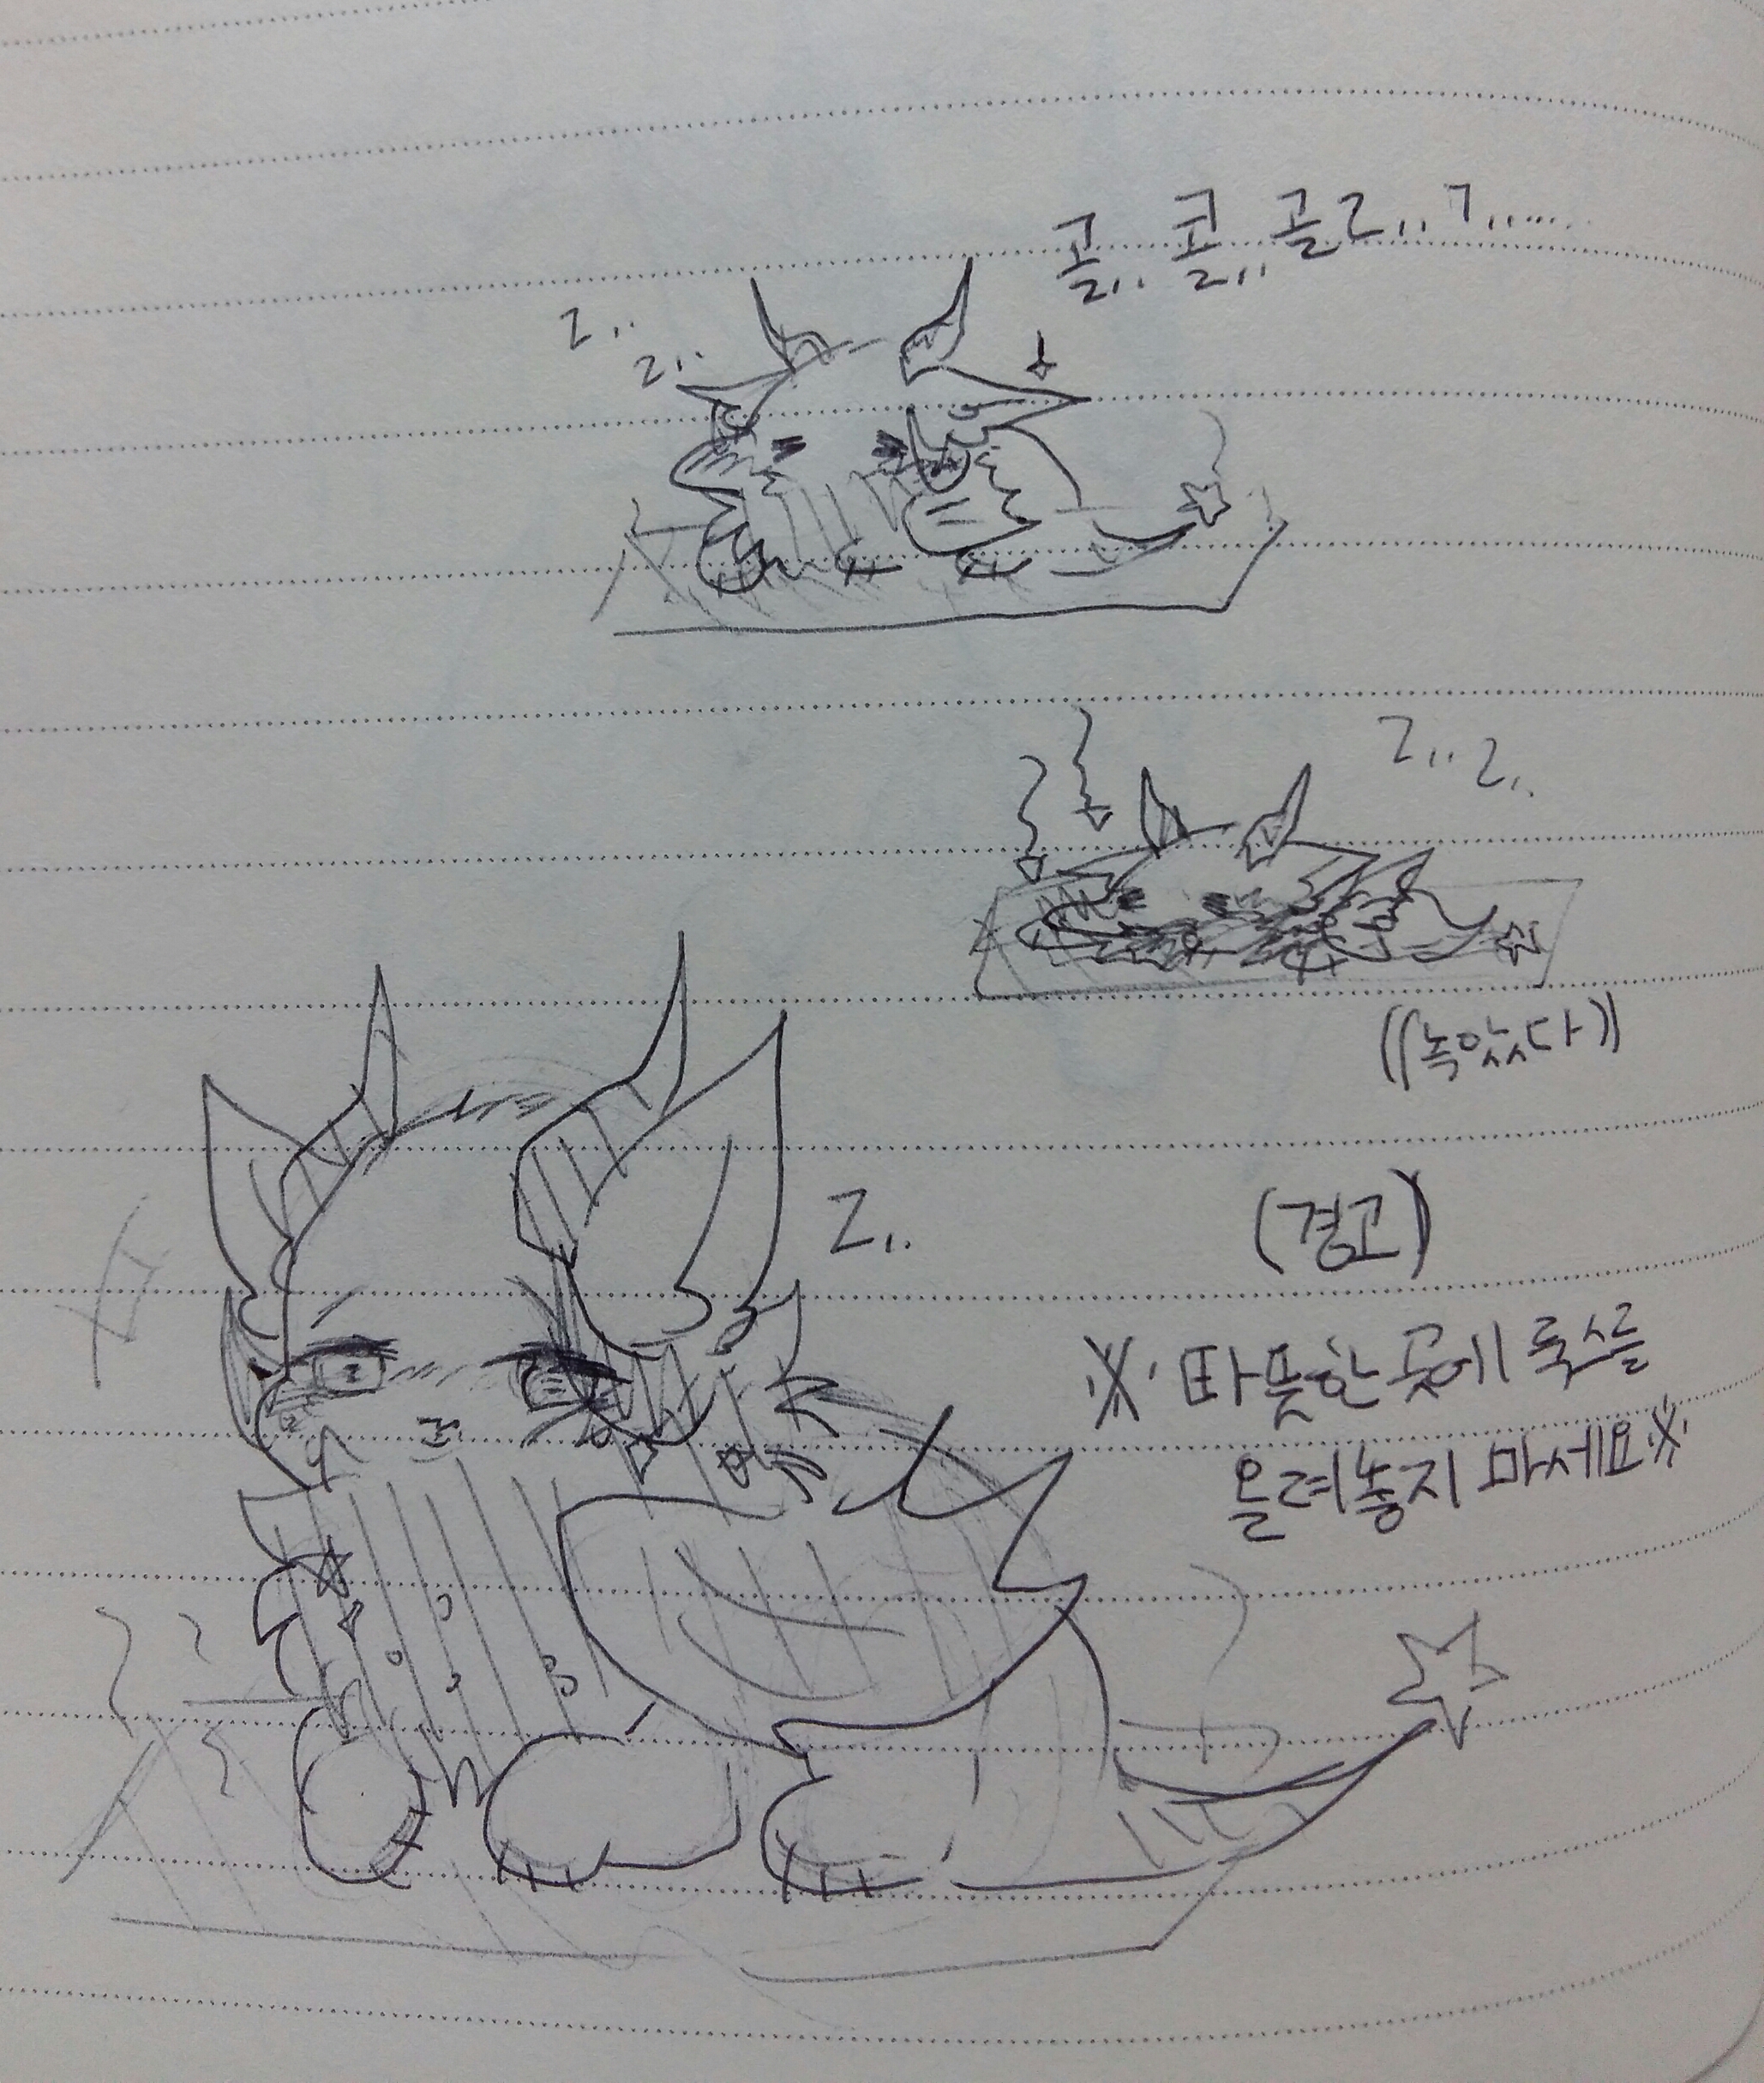 골,, 콜,, 골ㄹ,, ㄱ,,.....
z,,
z,,
z,, z,,
((녹았다))
z,,
(경고)
※ 따뜻한 곳에 룩스를
올려놓지 마세요※